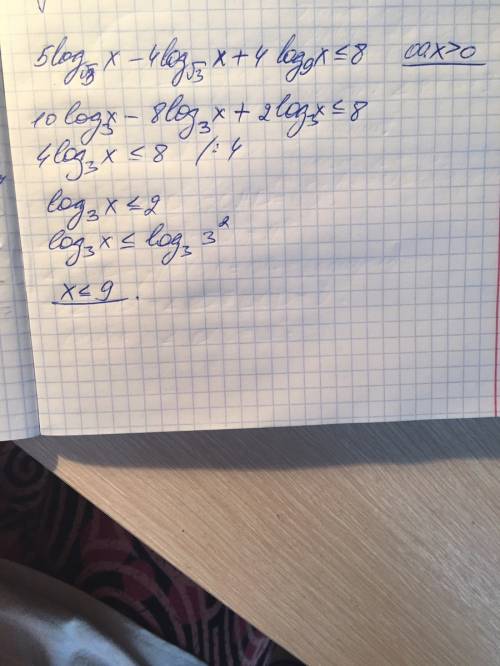 5log_{√3} x - 4log_{√3} x + 4 log_9 x ≤ 8 оах>0
10log_3 x - 8log_3 x + 2log_3 x ≤ 8
4log_3 x ≤ 8 /:4
log_3 x ≤ 2
log_3 x ≤ log_3 3^2
x ≤ 9.